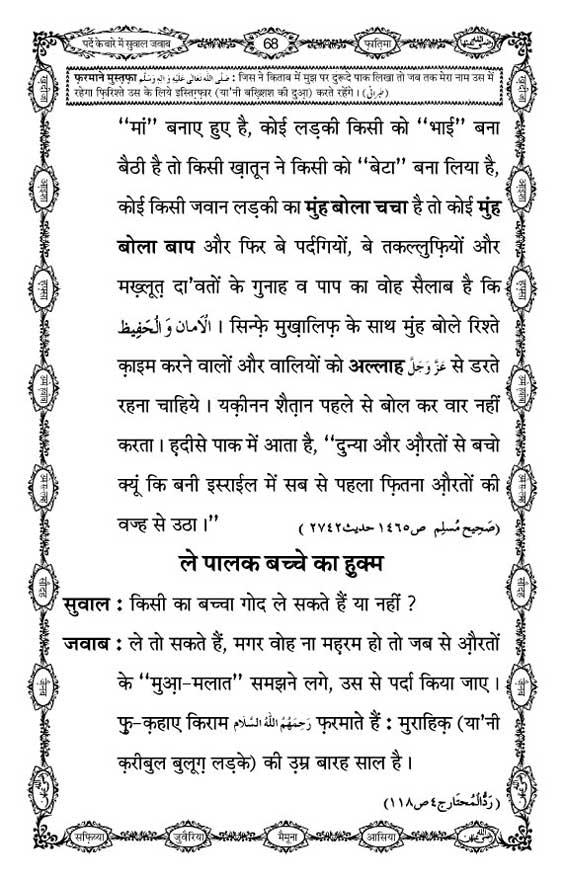 पर्दे के बारे में सुवाल जवाब
68
फ़ातिमा
फ़रमाने मुस्तफ़ा صَلَّى اللهُ تَعَالٰى عَلَيْهِ وَاٰلِهٖ وَسَلَّم : जिस ने किताब में मुझ पर दुरूदे पाक लिखा तो जब तक मेरा नाम उस में
रहेगा फ़िरिश्ते उस के लिये इस्तिग़्फ़ार (या'नी बख़्शिश की दुआ) करते रहेंगे । (طبرانی)
“मां” बनाए हुए है, कोई लड़की किसी को “भाई” बना
बैठी है तो किसी ख़ातून ने किसी को “बेटा” बना लिया है,
कोई किसी जवान लड़की का मुंह बोला चचा है तो कोई मुंह
बोला बाप और फिर बे पर्दगियों, बे तकल्लुफ़ियों और
मख़्लूत़ दा'वतों के गुनाह व पाप का वोह सैलाब है कि
اَلْاَمَان وَالْحَفِيظ । सिन्फ़े मुख़ालिफ़ के साथ मुंह बोले रिश्ते
क़ाइम करने वालों और वालियों को अल्लाह عَزَّوَجَلَّ से डरते
रहना चाहिये । यक़ीनन शैत़ान पहले से बोल कर वार नहीं
करता । ह़दीसे पाक में आता है, “दुन्या और औ़रतों से बचो
क्यूं कि बनी इस्राईल में सब से पहला फ़ितना औ़रतों की
वज्ह से उठा ।” (صَحِيح مُسلِم ص١٤٦٥ حديث٢٧٤٢)
ले पालक बच्चे का हुक्म
सुवाल : किसी का बच्चा गोद ले सकते हैं या नहीं ?
जवाब : ले तो सकते हैं, मगर वोह ना मह़रम हो तो जब से औ़रतों
के “मुआ़-मलात” समझने लगे, उस से पर्दा किया जाए ।
फु़-क़हाए किराम رَحِمَهُمُ اللهُ السَّلَام फ़रमाते हैं : मुराहिक़ (या'नी
क़रीबुल बुलूग़ लड़के) की उ़म्र बारह साल है ।
(رَدُّالْمُحتَار ج٤ ص١١٨)
सफ़िय्या
जुवैरिया
मैमूना
आसिया